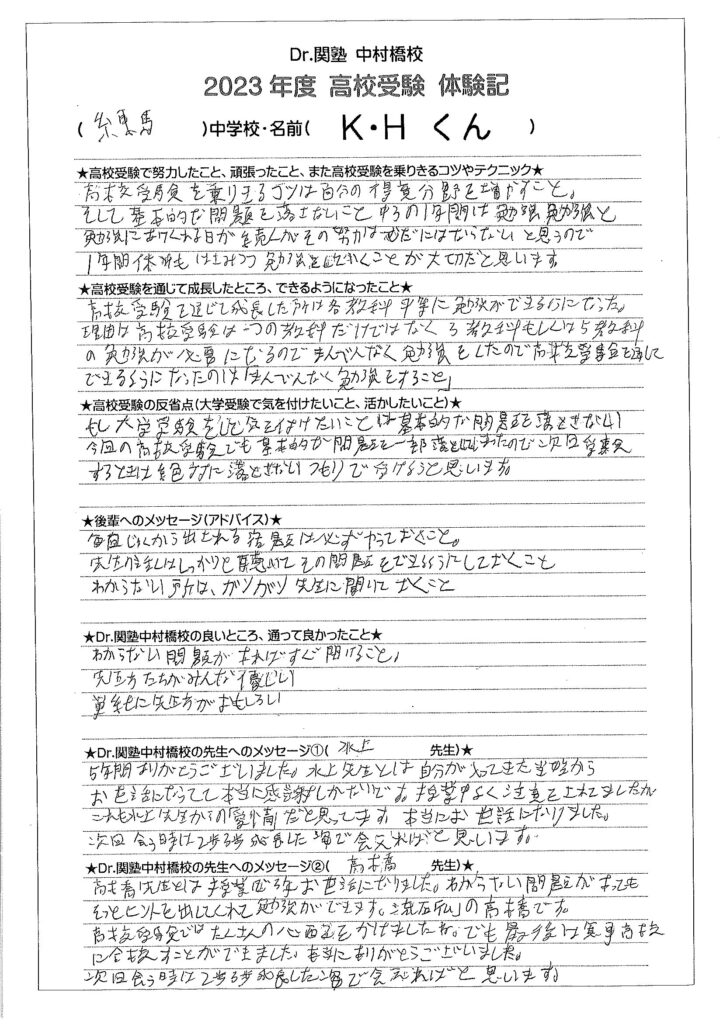 Dr.関塾 中村橋校
2023年度 高校受験 体験記
( 練馬 )中学校・名前( K・H くん )
★高校受験で努力したこと、頑張ったこと、また高校受験を乗りきるコツやテクニック★
高校受験を乗りきるコツは自分の得意分野を増やすこと。
そして基本的な問題を落さないこと 中3の1年間は勉強勉強と
勉強におわれる日が続くがその努力はむだにはならないと思うので
1年間休みもはさみつつ勉強をしておくことが大切だと思います
★高校受験を通じて成長したところ、できるようになったこと★
高校受験を通じて成長した所は各教科平等に勉強ができるようになった。
理由は高校受験は一つの教科だけではなく3教科もしくは5教科
の勉強が必要になるのでまんべんなく勉強をしたので高校受験を通して
できるようになったのは「まんべんなく勉強をすること」
★高校受験の反省点(大学受験で気を付けたいこと、活かしたいこと)★
もし大学受験をして気を付けたいことは基本的な問題を落とさない
今回の高校受験でも基本的な問題を一部落としてしまったので次回受験
するときは絶対に落とさないつもりで受けようと思います。
★後輩へのメッセージ(アドバイス)★
毎回じゅくから出される宿題は必ずやっておくこと。
先生の話はしっかりと聴いてその問題をできるようにしておくこと
わからない所は、ガツガツ先生に聞いておくこと
★Dr.関塾中村橋校の良いところ、通って良かったこと★
わからない問題があればすぐ聞けること。
先生方たちがみんな優しい
単純に先生方がおもしろい
★Dr.関塾中村橋校の先生へのメッセージ①( 水上 先生)★
5年間ありがとうございました。水上先生とは自分が入ってきた当時から
お世話になってて本当に感謝しかないです。授業中よく注意をされてましたが
これも水上先生からの「愛情」だと思ってます 本当にお世話になりました。
次回会う時は2歩3歩成長した姿で会えればと思います。
★Dr.関塾中村橋校の先生へのメッセージ②( 高橋 先生)★
高橋先生とは授業で3年お世話になりました。わからない問題があっても
そっとヒントを出してくれて勉強ができます。「流石」の高橋です。
高校受験ではたくさんの心配をかけましたね。でも最後は無事高校
に合格することができました。本当にありがとうございました。
次回会う時は2歩3歩成長した姿で会えればと思います。